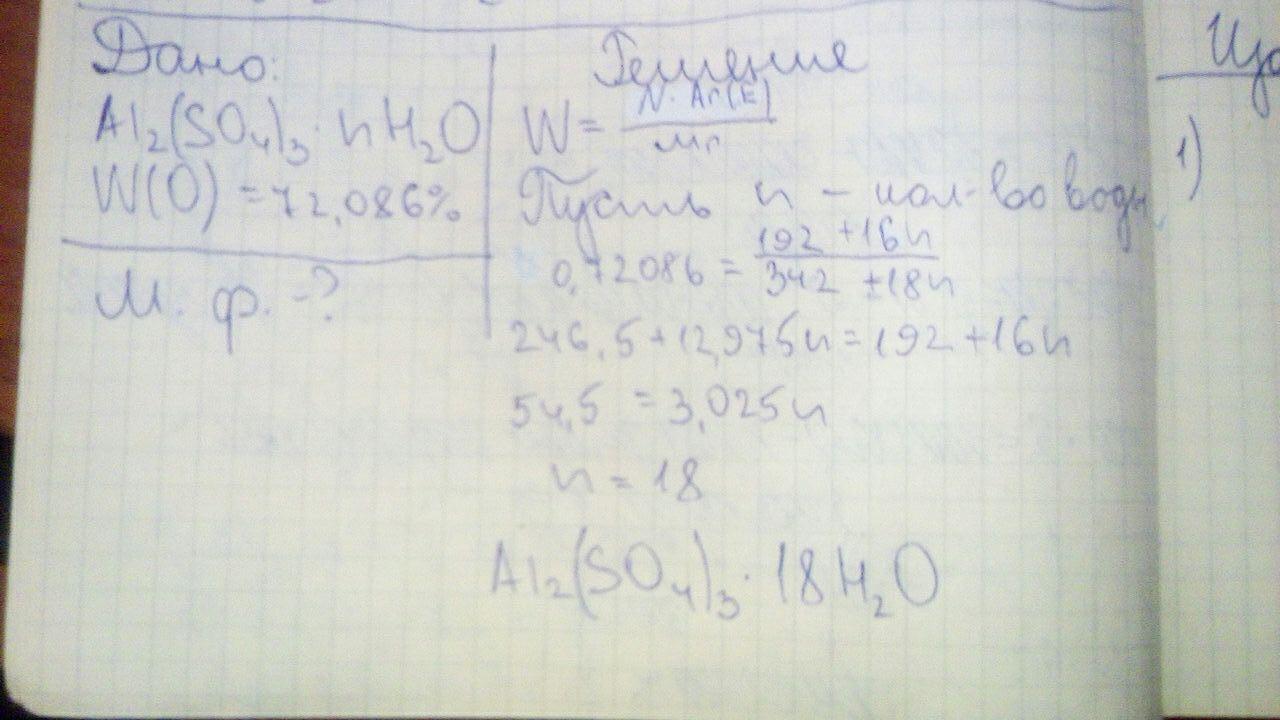 Дано:
Al₂(SO₄)₃ · nH₂O
W(O) = 72,086%
М. ф. - ?
Решение
W = N · Ar(E) / Mr
Пусть n - кол-во воды
0,72086 = 192 + 16n / 342 + 18n
246,5 + 12,975n = 192 + 16n
54,5 = 3,025n
n = 18
Al₂(SO₄)₃ · 18H₂O
1)